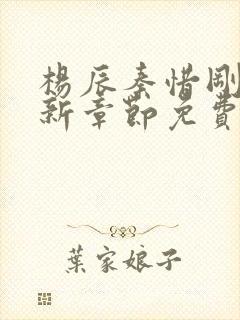 楊辰秦惜剛
新章節免費
葉家娘子